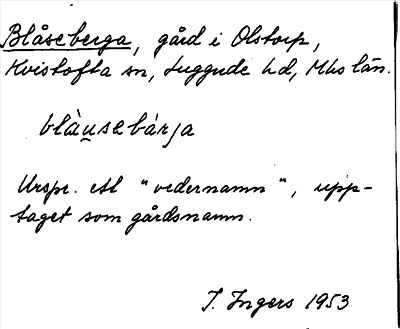 Blåseberga, gård i Olstorp,
Kvistofta sn, Luggude hd, Mhs län.
blàu̯sebárja
Urspr. ett "vedernamn", upp-
taget som gårdsnamn.
I. Ingers 1953